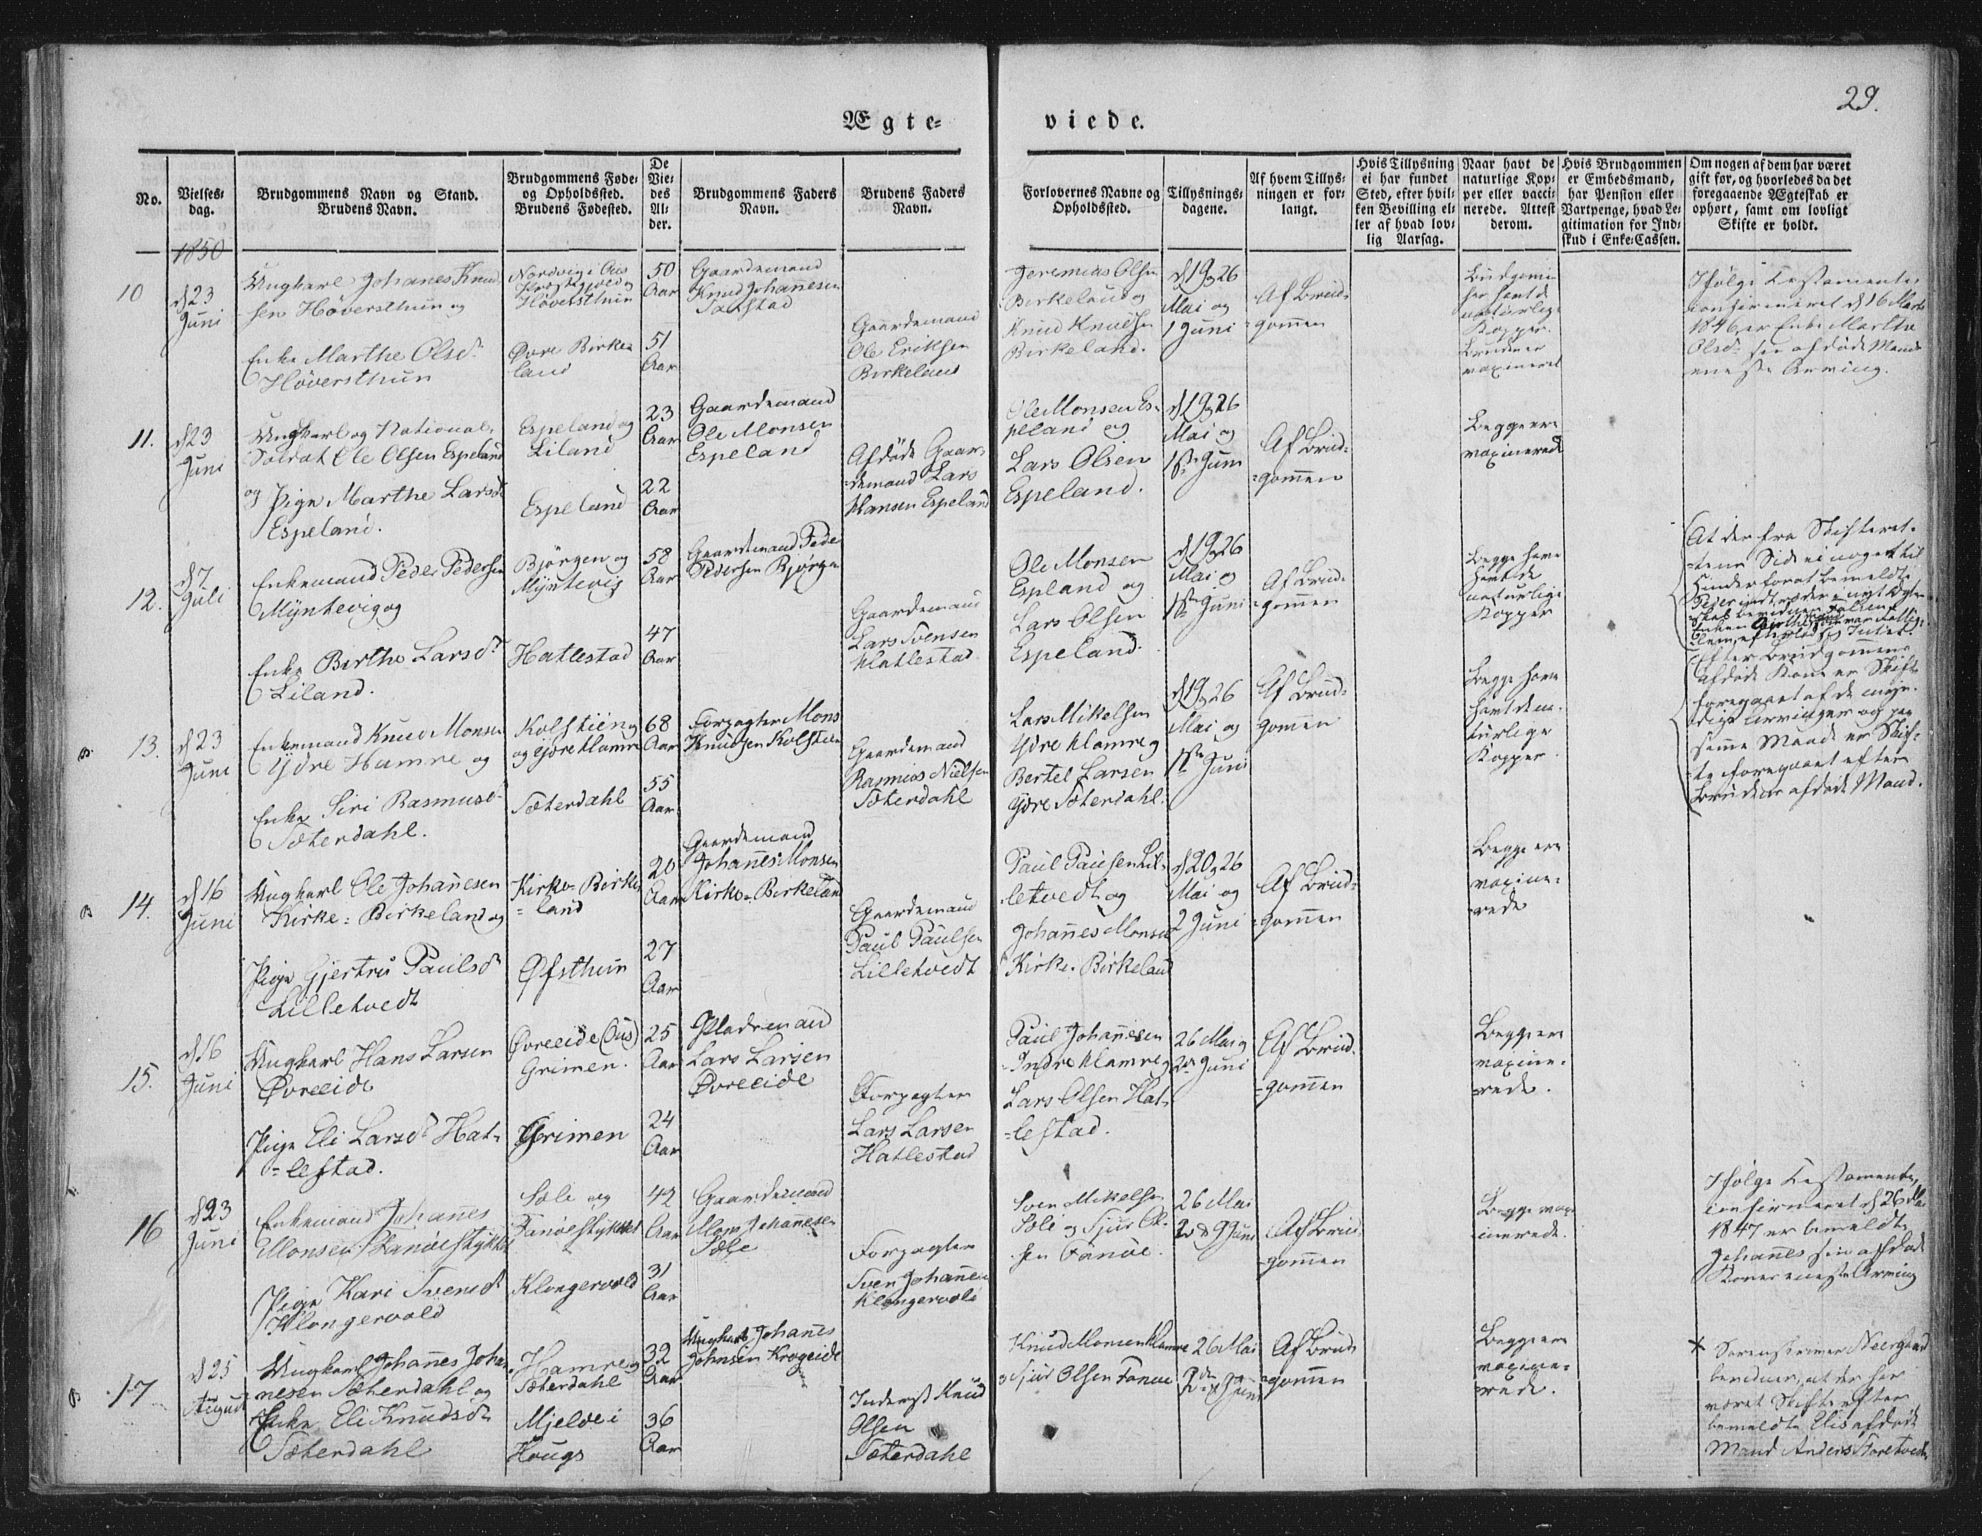 29.
Ægte-
viede.
No.
Vielses-
dag.
Brudgommens Navn og Stand.
Brudens Navn.
Brudgommens Føde-
og Opholdssted.
Brudens Fødested.
De
Vie-
des
Al-
der.
Brudgommens Faders
Navn.
Brudens Faders
Navn.
Forlovernes Navne og
Opholdssted.
Tillysnings-
dagene.
Af hvem Tillys-
ningen er for-
langt.
Hvis Tillysning
ei har fundet
Sted, efter hvil-
ken Bevilling el-
ler af hvad lov-
lig Aarsag.
Naar havt de
naturlige Kop-
per eller vacci-
nerede. Attest
derom.
Hvis Brudgommen
er Embedsmand,
har Pension eller
Vartpenge, hvad Le-
gitimation for Ind-
skud i Enke-Cassen.
Om nogen af dem har været
gift før, og hvorledes da det
foregaaende Ægteskab er
ophørt, samt om lovligt
Skifte er holdt.
1850
10
d 23
Juni
Ungkarl Johanes Knud
sen Høversthun og
Enke Marthe Olsd.
Høversthun
Nordvig i Ous
Præstegjeld og
Høversthun
Øvre Birke
land
50
Aar
51
Aar
Gaardemand
Knud Johannesen
Gaardemand
Ole Eriksen
Birkeland
Jeremias Olsen
Birkeland og
Knud Knudsen
Birkeland.
d 19, 26
Mai og
1 Juni
Af Brud-
gommen
Brudgomen
har havt de
naturlige
Kopper.
Bruden er
vaxineret
Ifølge Testamente,
confirmeret d 16 Marts
1846, er Enke Marthe
Olsd. sin afdøde Mands
eneste Arving.
11.
d 23
Juni
Ungkarl og National-
Soldat Ole Olsen Espeland
og Pige Marthe Larsd.
Espeland.
Espeland og
Liland
Espeland
23
Aar
22
Aar
Gaardemand
Ole Monsen
Espeland
Afdøde Gaar-
demand Lars
Hansen Espeland
Ole Monsen Es-
peland og
Lars Olsen
Espeland.
d 19, 26
Mai og
1ste Juni
Af Brud-
gommen
Begge ere
vaxinerede
12.
d 7
Juli
Enkemand Peder Pedersen
Myntevig og
Enke Berthe Larsd.
Liland.
Bjørgen og
Myntevig
Hatlestad
58
Aar
47
Aar
Gaardemand Peder
Pedersen Bjørgen
Gaardemand
Lars Svensen
Hatlestad
Ole Monsen
Espland og
Lars Olsen
Espeland.
d 19, 26
Mai og
1ste Juni
Af Brud-
gommen
Begge have
havt de
naturlige
Kopper
At der fra Skifteret-
tens Side ei noget til
Hinder for at bemeldte
Peder indtræder i nyt Ægte-
skab
13.
d 23
Juni
Enkemand Knud Monsen
Ydre Hamre og
Enke Siri Rasmusd.
Sæterdahl.
Kolstien
og Ydre Hamre
Sæterdahl
68
Aar
55
Aar
Forpagter Mons
Knudsen Kolstien
Gaardemand
Rasmus Nielsen
Sæterdahl
Lars Mikelsen
Ydre Hamre og
Bertel Larsen
Ydre Sæterdahl.
d 19, 26
Mai og
1ste Juni
Af Brud-
gomen
Begge have
havt de na-
turlige
Kopper.
Efter Brudgommens
afdøde Kone er Skifte
foregaaet af de myn-
dige Arvinger og paa
samme Maade er Skif-
te foregaaet efter
Brudens afdøde Mand.
14.
d 16
Juni
Ungkarl Ole Johanesen
Kirke-Birkeland og
Pige Gjertru Paulsd.
Lilletvedt
Kirke-Birke
land
Øfsthun
20
Aar
27
Aar
Gaardemand
Johanes Monsen
Kirke-Birkeland
Gaardemand
Paul Paulsen
Lilletvedt
Paul Paulsen Lil-
letvedt og
Johannes Monsen
Kirke-Birkeland
d 20, 26
Mai og
2 Juni
Af Brud-
gommen
Begge ere
vaxine-
rede
15.
d 16
Juni
Ungkarl Hans Larsen
Øvreeide
Pige Eli Larsd. Hat-
lestad.
Øvreeide (Ous)
Grimen.
Grimen
25
Aar
24
Aar
Pladsemand
Lars Larsen
Øvreeide
Forpagter
Lars Larsen
Hatlestad
Paul Johannesen
Indre Hamre og
Lars Olsen Hat-
lestad.
26 Mai og
2en Juni
Af Brud-
gommen
Begge ere
vaxine-
rede.
16
d 23
Juni
Enkemand Johanes
Monsen Fanøelstykket
Pige Kari Svensd.
Klongervold
Søle og
Fanøelstykket
Klongervold
42
Aar
31
Aar
Gaardemand
Mons Johannesen
Søle
Forpagter
Sven Johannesen
Klongervold
Sven Mikelsen
Søle og Sjur Ol-
sen Fanøe.
26 Mai
2 & 9 Juni
Af Brud-
gommen
Begge vax-
inerede.
Ifølge Testamente,
confirmeret d 26 Mai
1847 er bemeldte
Johannes sin afdøde
Kones eneste Arving
17
d 25
August
Ungkarl Johannes Joha-
nesen Sæterdahl og
Enke Eli Knudsd.
Sæterdahl
Hamre og
Sæterdahl
Mjelde i
Hougs
32
Aar
36
Aar
Ungkarl Johanes
Johnsen Krogeide
Inderst Knud
Olsen
Sæterdahl
Knud Monsen Hamre
Sjur Olsen Fanøe
26 Mai
Af Brud
gommen
Begge ere
vaxine-
rede.
* Sorenskriver Neergaard
bevidner, at der har
været Skifte efter
bemeldte Elis afdøde
Mand Anders Storetvedt.